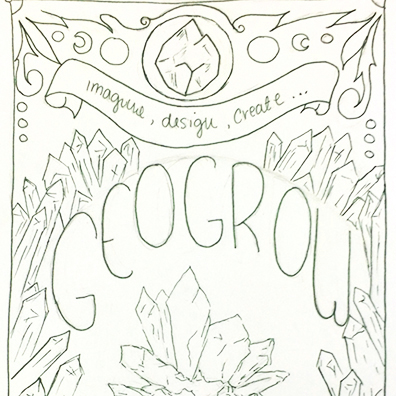 imagine, design, create...
GEOGROW